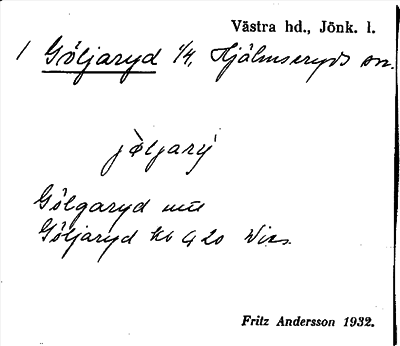 Västra hd., Jönk. l.
1 Göljaryd 1/4, Hjälmseryds sn.
jøljarý
Gölgaryd
Göljaryd kb G 20
Fritz Andersson 1932.